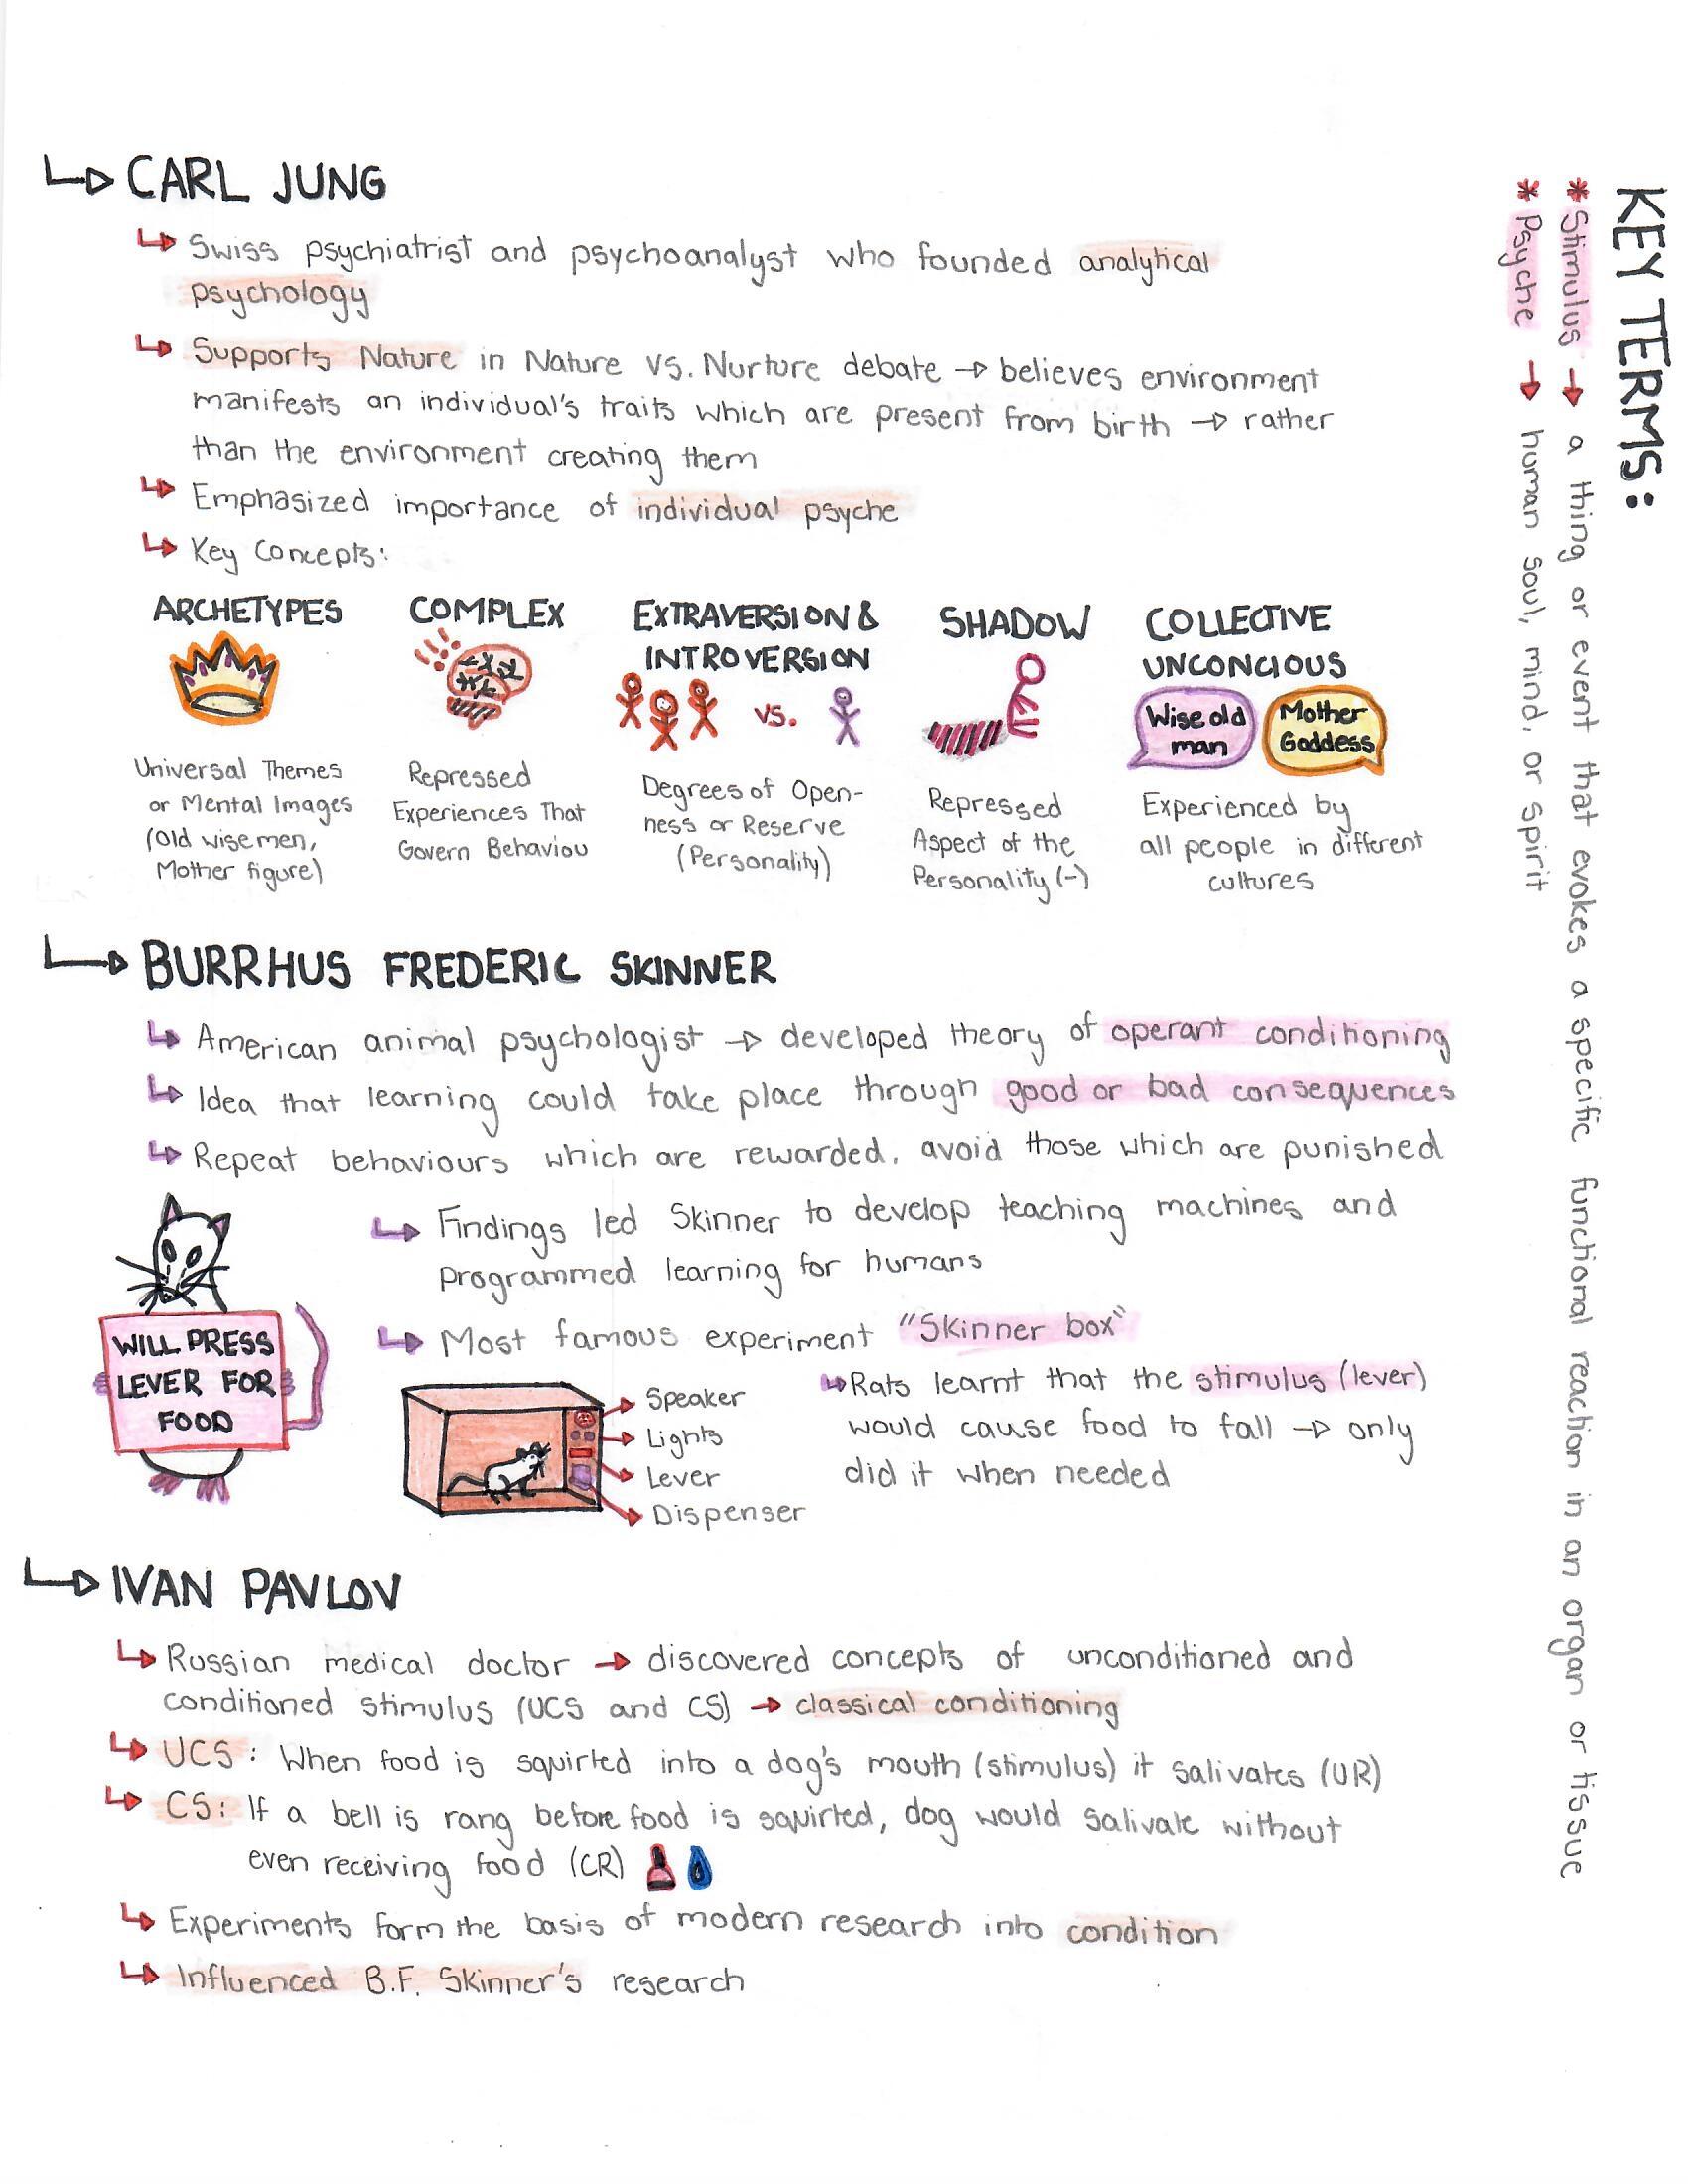 CARL JUNG
Swiss psychiatrist and psychoanalyst who founded analytical
psychology
Supports Nature in Nature vs. Nurture debate → believes environment
manifests an individual's traits which are present from birth → rather
than the environment creating them
Emphasized importance of individual psyche
Key Concepts:
ARCHETYPES
Universal Themes
or Mental Images
(Old wise men,
Mother figure)
COMPLEX
Repressed
Experiences That
Govern Behaviou
EXTRAVERSION &
INTROVERSION
vs.
Degrees of Open-
ness or Reserve
(Personality)
SHADOW
Repressed
Aspect of the
Personality (-)
COLLECTIVE
UNCONCIOUS
Wise old
man
Mother
Goddess
Experienced by
all people in different
cultures
BURRHUS FREDERIC SKINNER
American animal psychologist → developed theory of operant conditioning
Idea that learning could take place through good or bad consequences
Repeat behaviours which are rewarded, avoid those which are punished
Findings led Skinner to develop teaching machines and
programmed learning for humans
Most famous experiment "Skinner box"
WILL PRESS
LEVER FOR
FOOD
Speaker
Lights
Lever
Dispenser
Rats learnt that the stimulus (lever)
would cause food to fall → only
did it when needed
IVAN PAVLOV
Russian medical doctor → discovered concepts of unconditioned and
conditioned stimulus (UCS and CS) → classical conditioning
UCS: When food is squirted into a dog's mouth (stimulus) it salivates (UR)
CS: If a bell is rang before food is squirted, dog would salivate without
even receiving food (CR)
Experiments form the basis of modern research into condition
Influenced B.F. Skinner's research
KEY TERMS:
* Stimulus → a thing or event that evokes a specific functional reaction in an organ or tissue
* Psyche → human soul, mind, or spirit